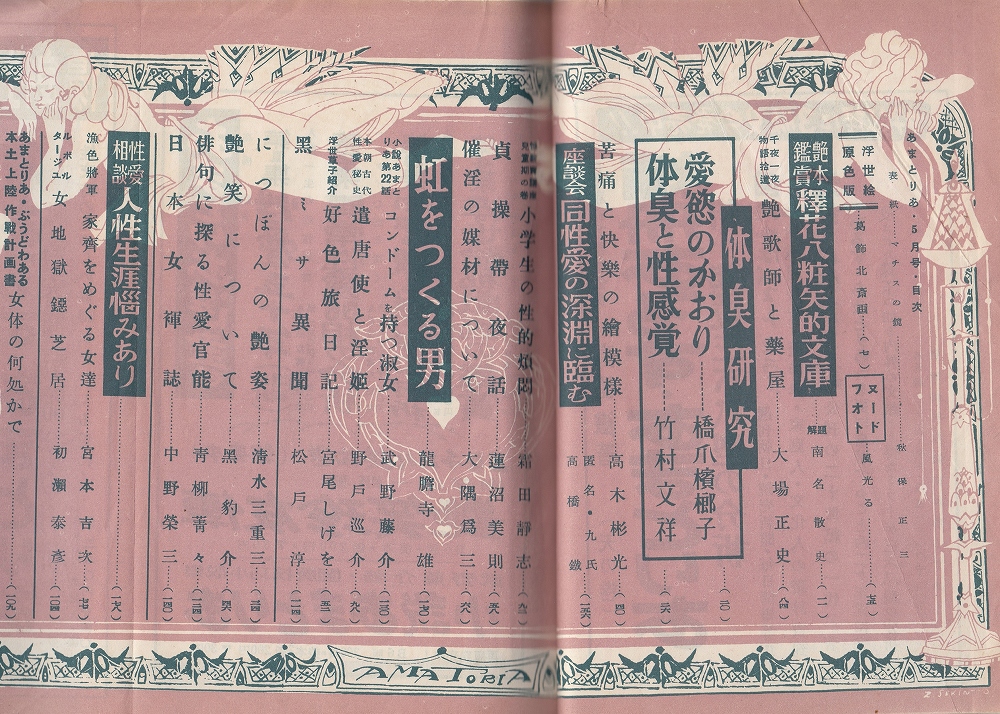 あまとりあ・5月号・目次
表紙…マチスの鏡…秋保正三
浮世絵原色版…葛飾北斎画…(七)
ヌードフオト…風光る
艶本鑑賞 釋花八粧矢的文庫…解題 南名散史…(一一)
千夜一夜物語拾遺 艶歌師と藥屋…大場正史…(八四)
体臭研究…(三〇)
愛慾のかおり…橋爪檳榔子
体臭と性感覚…竹村文祥…(三六)
苦痛と快樂の繪模様…高木彬光…(四〇)
座談会 同性愛の深淵に臨む…匿名・九氏 高橋鐵
兒童期の巻 小学生の性的煩悶…霜田靜志
貞操帯夜話…蓮沼美則
催淫の媒材について…大隅爲三…(六八)
虹をつくる男…龍膽寺雄
小説あまとりあ第22話 コンドームを持つ淑女…武野藤介
本朝古代性愛秘史 遣唐使と淫姫…野戸巡介
浮世草子紹介 好色旅日記…宮尾しげを
黒ミサ異聞…松戸淳
につぽんの艶姿…清水三重三
艶笑について…黒豹介
俳句に探る性愛官能…青柳菁々
日本女褌誌…中野榮三
性愛相談 人性生涯悩みあり
漁色將軍 家齊をめぐる女達…宮本吉次
ルポルタージユ 女地獄鐚芝居…初瀬泰彦…(一〇四)
あまとりあ・ぶうどわある
本土上陸作戦計画書 女体の何処かで…(一〇九)
AMATORIA